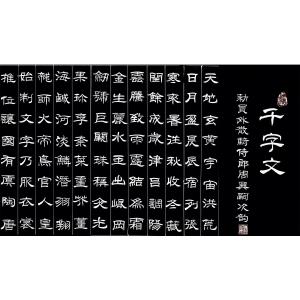 千字文
勑員外散騎侍郎周興嗣次韵
天地玄黃宇宙洪荒
日月盈昃辰宿列張
寒來暑往秋收冬藏
閏餘成歲律呂調陽
雲騰致雨露結為霜
金生麗水玉出崐岡
劍號巨闕珠稱夜光
果珍李柰菜重芥薑
海鹹河淡鱗潛羽翔
龍師火帝鳥官人皇
始制文字乃服衣裳
推位讓國有虞陶唐